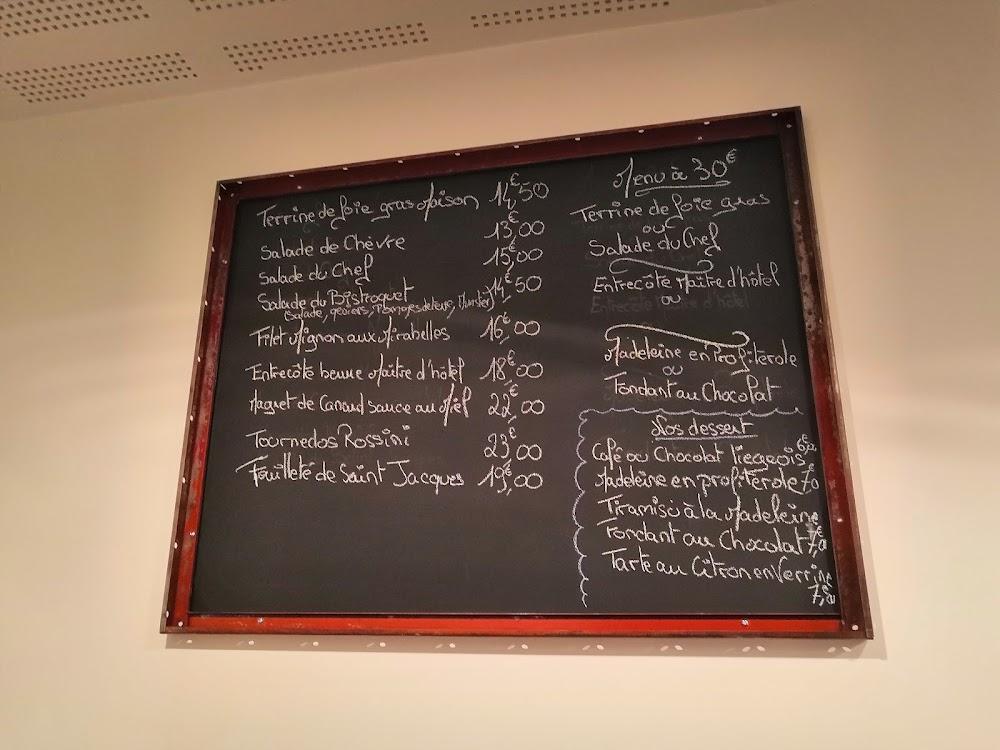 Terrine de foie gras Maison 14€,50
Salade de Chèvre 13€,00
Salade du Chef 15€,00
Salade du Bistroquet 14€,50
(Salade, gésiers, Munster)
Filet Mignon aux Mirabelles 16€,00
Entrecôte beurre Maître d'hôtel 18€,00
Magret de Canard sauce au Miel 22€,00
Tournedos Rossini 23€,00
Feuilleté de Saint Jacques 19€,00
Menu à 30€
Terrine de foie gras
ou
Salade du Chef
Entrecôte Maître d'hôtel
ou
Entrecôte Maître d'hôtel
Madeleine en Profiterole
ou
Fondant au Chocolat
Nos dessert
Café ou Chocolat liegeois
Madeleine en profiterole
Tiramisù à la Madeleine
Fondant au Chocolat
Tarte au Citron en Verrine